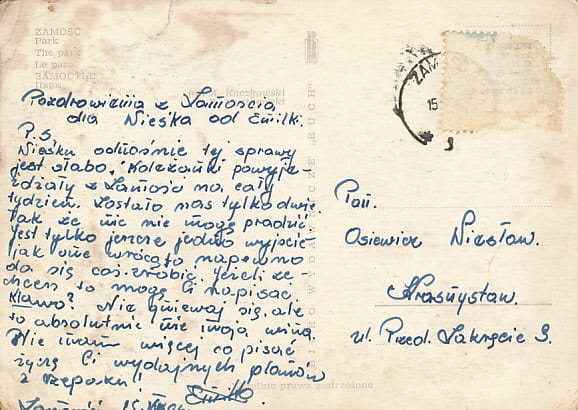 ZAMOŚĆ
Park
The park
Le parc
ЗАМОСТЬЕ
Парк
Kaczkowski
Pozdrowienia z Zamościa,
dla Nieśka od Emilki.
P.S.
Nieśku odnośnie tej sprawy
jest słabo. Koleżanki powyje-
dżały z Zamość na cały
tydzien. Zostało nas tylko dwie
tak że nic nie mogę pradzić
jest tylko jeszcze jedno wyjście
jak one wrócą to napewno
da się coś zrobić. Jeżeli ze-
chcesz to mogę Ci napisać
Kławo? Nie gniewaj się, ale
to absolutnie nie moja wina.
Nie mam więcej co pisać
życzę Ci wydajnych plonów
z rzepaku! Emilka
Zamość 15.
BIURO WYDAWNICZE „RUCH"
wszelkie prawa zastrzeżone
ZAM
15
9
Pan.
Osiewicz Niesław.
Krasnystaw.
ul. Przed. Zakręcie 3.